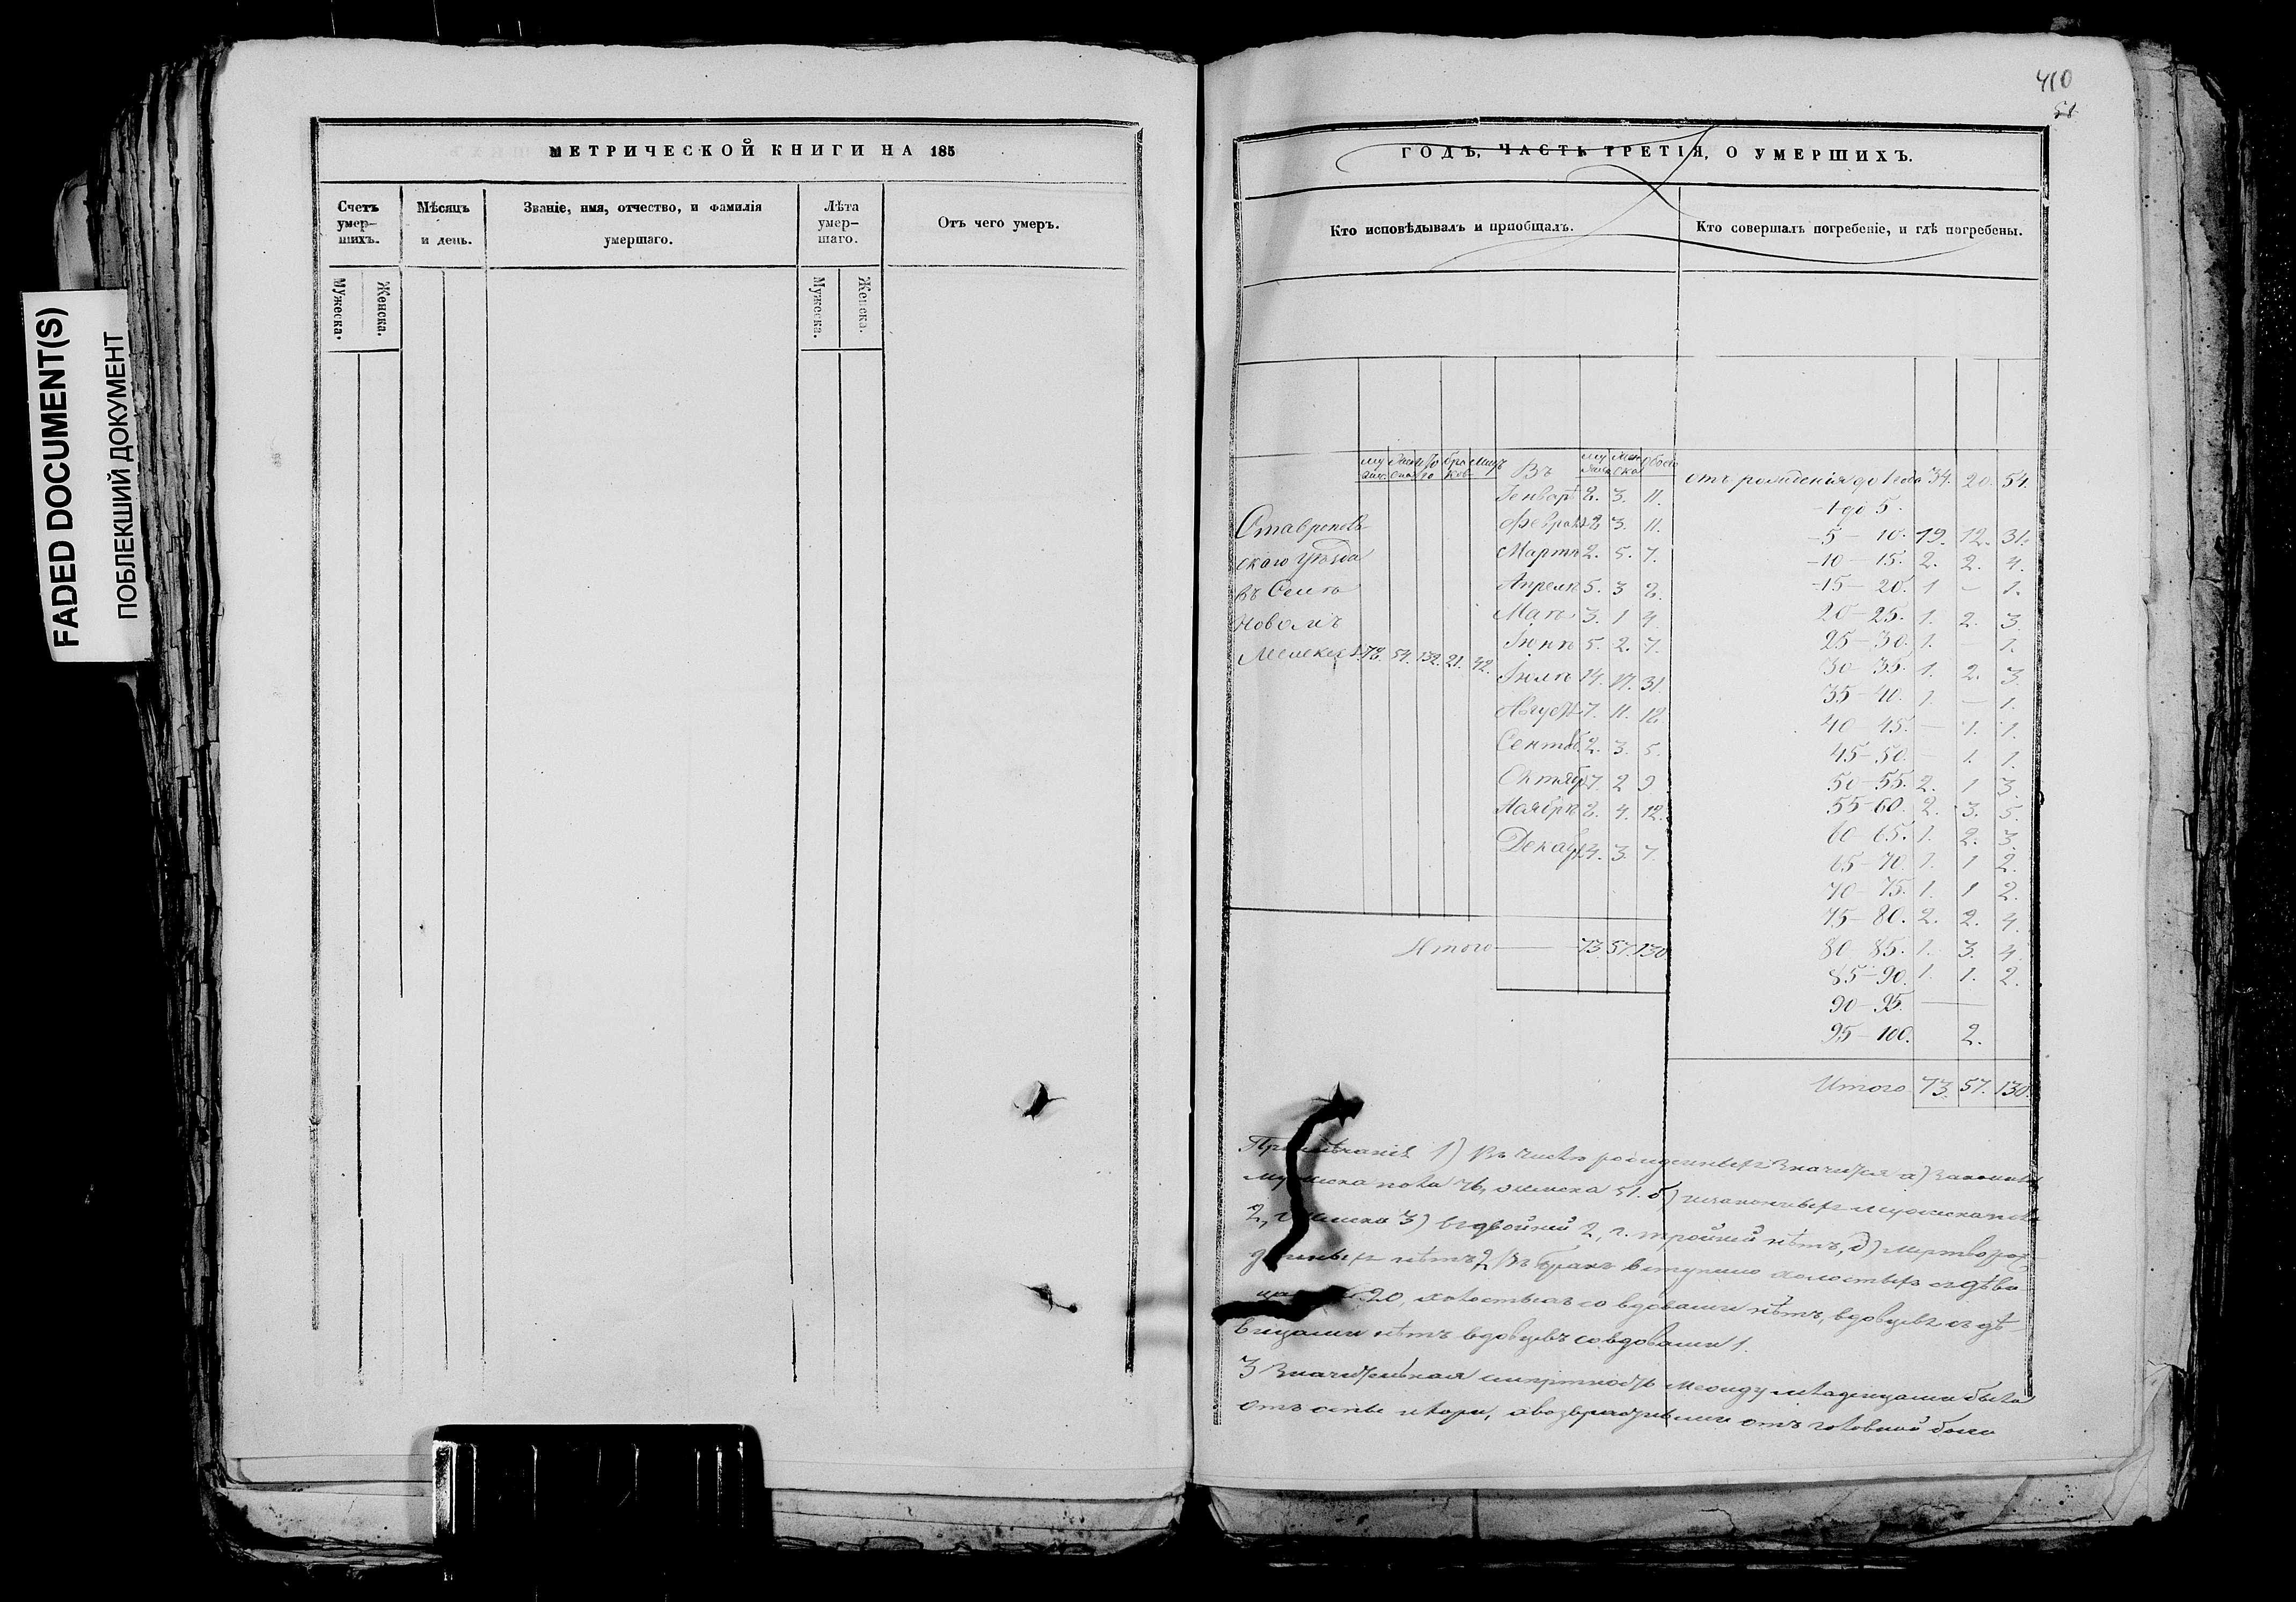 FADED DOCUMENT(S)
ПОБЛЕКШИЙ ДОКУМЕНТ
МЕТРИЧЕСКОЙ КНИГИ НА 185
Счетъ умер-шихъ.
Мужеска.
Женска.
Мѣсяцъ и день.
Званіе, имя, отчество, и фамилія умершаго.
Лѣта умер-шаго.
Мужеска.
Женска.
Отъ чего умеръ.
410
51
ГОДЪ, ЧАСТЬ ТРЕТІЯ, О УМЕРШИХЪ.
Кто исповѣдывалъ и пріобщалъ.
Кто совершалъ погребеніе, и гдѣ погребены.
Ставрополь
скаго уѣзда
въ Селѣ
Новомъ
78. 54. 132. 21. 42.
Въ
Генварѣ 8. 3. 11.
Февралѣ 8 3. 11.
Мартѣ 2. 5. 7.
Апрелѣ 5. 3 8.
Маѣ 3. 1 4.
Іюнѣ 5. 2. 7.
Іюлѣ 14. 17. 31.
Августѣ 7. 11. 18.
Сентяб 2. 3. 5.
Октябр 7. 2 9
Ноябрѣ 8. 4. 12.
Декабр 4. 3. 7.
Итого 73 57. 130
отъ рожденія до 1 года 34. 20. 54.
1 до 5.
5 — 10. 19. 12. 31.
10 — 15. 2. 2. 4.
15 — 20. 1 — 1.
20 — 25. 1. 2. 3
25 — 30. 1. — 1.
30 — 35. 1. 2. 3
35 — 40. 1. — 1.
40 — 45. — 1. 1.
45 — 50. 1. 1.
50 — 55. 2. 1 3
55 — 60. 2. 3. 5.
60 — 65. 1. 2. 3.
65 — 70. 1. 1 2.
70 — 75. 1. 1 2.
75 — 80. 2. 2. 4.
80 — 85. 1. 3. 4.
85 — 90. 1. 1. 2.
90 — 95. —
95 — 100. 2.
Итого 73. 57. 130.
Примѣчаніе 1) Въ числѣ рожденныхъ значится а) законныхъ
мужеска пола 76, женска 51. б) незаконныхъ мужеска пола
2, женска 3) в двойней 2, г. тройней нѣтъ, д) мертворож-
денныхъ нѣтъ 2) Въ бракъ вступило холостыхъ съ дѣви
цами 20, холостыхъ со вдовами нѣтъ, вдовцевъ съ дѣ-
вицами нѣтъ вдовцевъ со вдовами 1.
3 Значительная смертность между младенцами была
отъ оспы и кори,